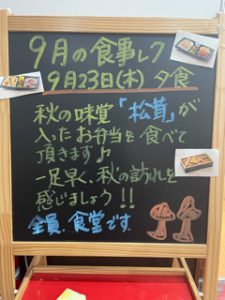 9月の食事レク
9月23日(木) 夕食
秋の味覚「松茸」が
入ったお弁当を食べて
頂きます♪
一足早く、秋の訪れを
感じましょう!!
全員、食堂です。